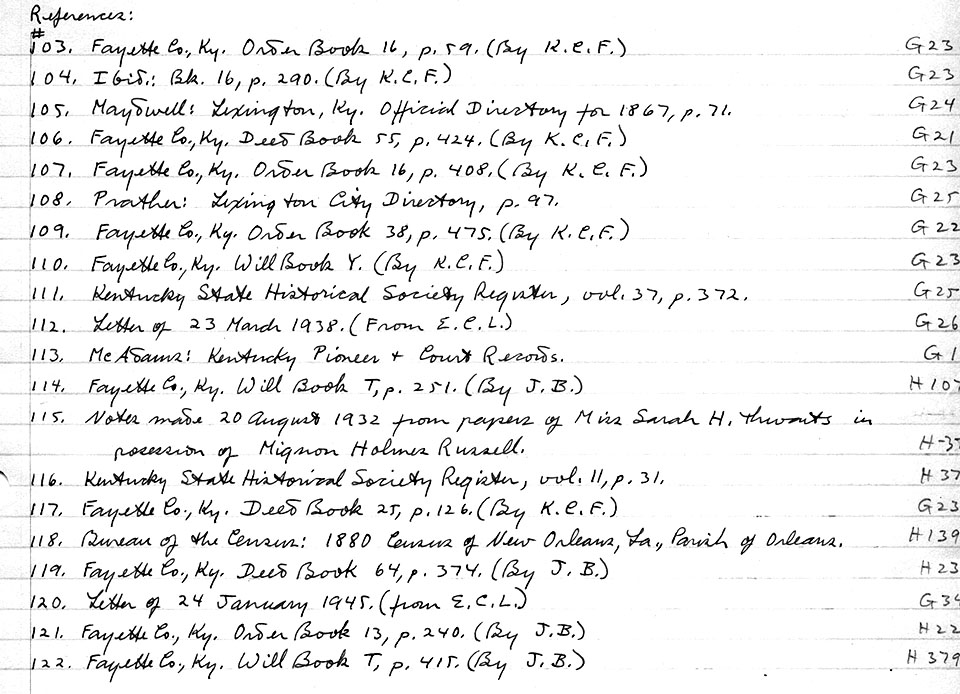 References:
#
103. Fayette Co., Ky. Order Book 16, p. 59. (By K.C.F.) G23
104. Ibid.: Bk. 16, p. 290. (By K.C.F.) G23
105. Maydwell: Lexington, Ky. Official Directory for 1867, p. 71. G24
106. Fayette Co., Ky. Deed Book 55, p. 424. (By K.C.F.) G21
107. Fayette Co., Ky. Order Book 16, p. 408. (By K.C.F.) G23
108. Prather: Lexington City Directory, p. 97. G25
109. Fayette Co., Ky. Order Book 38, p. 475. (By K.C.F.) G22
110. Fayette Co., Ky. Will Book Y. (By K.C.F.) G23
111. Kentucky State Historical Society Register, vol. 37, p. 372. G25
112. Letter of 23 March 1938. (From E.C.L.) G26
113. McAdams: Kentucky Pioneer + Court Records. G1
114. Fayette Co., Ky. Will Book T, p. 251. (By J.B.) H107
115. Notes made 20 August 1932 from papers of Miss Sarah H. Thwaits in
posession of Mignon Holmes Russell. H-37
116. Kentucky State Historical Society Register, vol. 11, p. 31. H37
117. Fayette Co., Ky. Deed Book 25, p. 126. (By K.C.F.) G23
118. Bureau of the Census: 1880 Census of New Orleans, La., Parish of Orleans. H139
119. Fayette Co., Ky. Deed Book 64, p. 374. (By J.B.) H23
120. Letter of 24 January 1945. (from E.C.L.) G34
121. Fayette Co., Ky. Order Book 13, p. 240. (By J.B.) H22
122. Fayette Co., Ky. Will Book T, p. 415. (By J.B.) H379